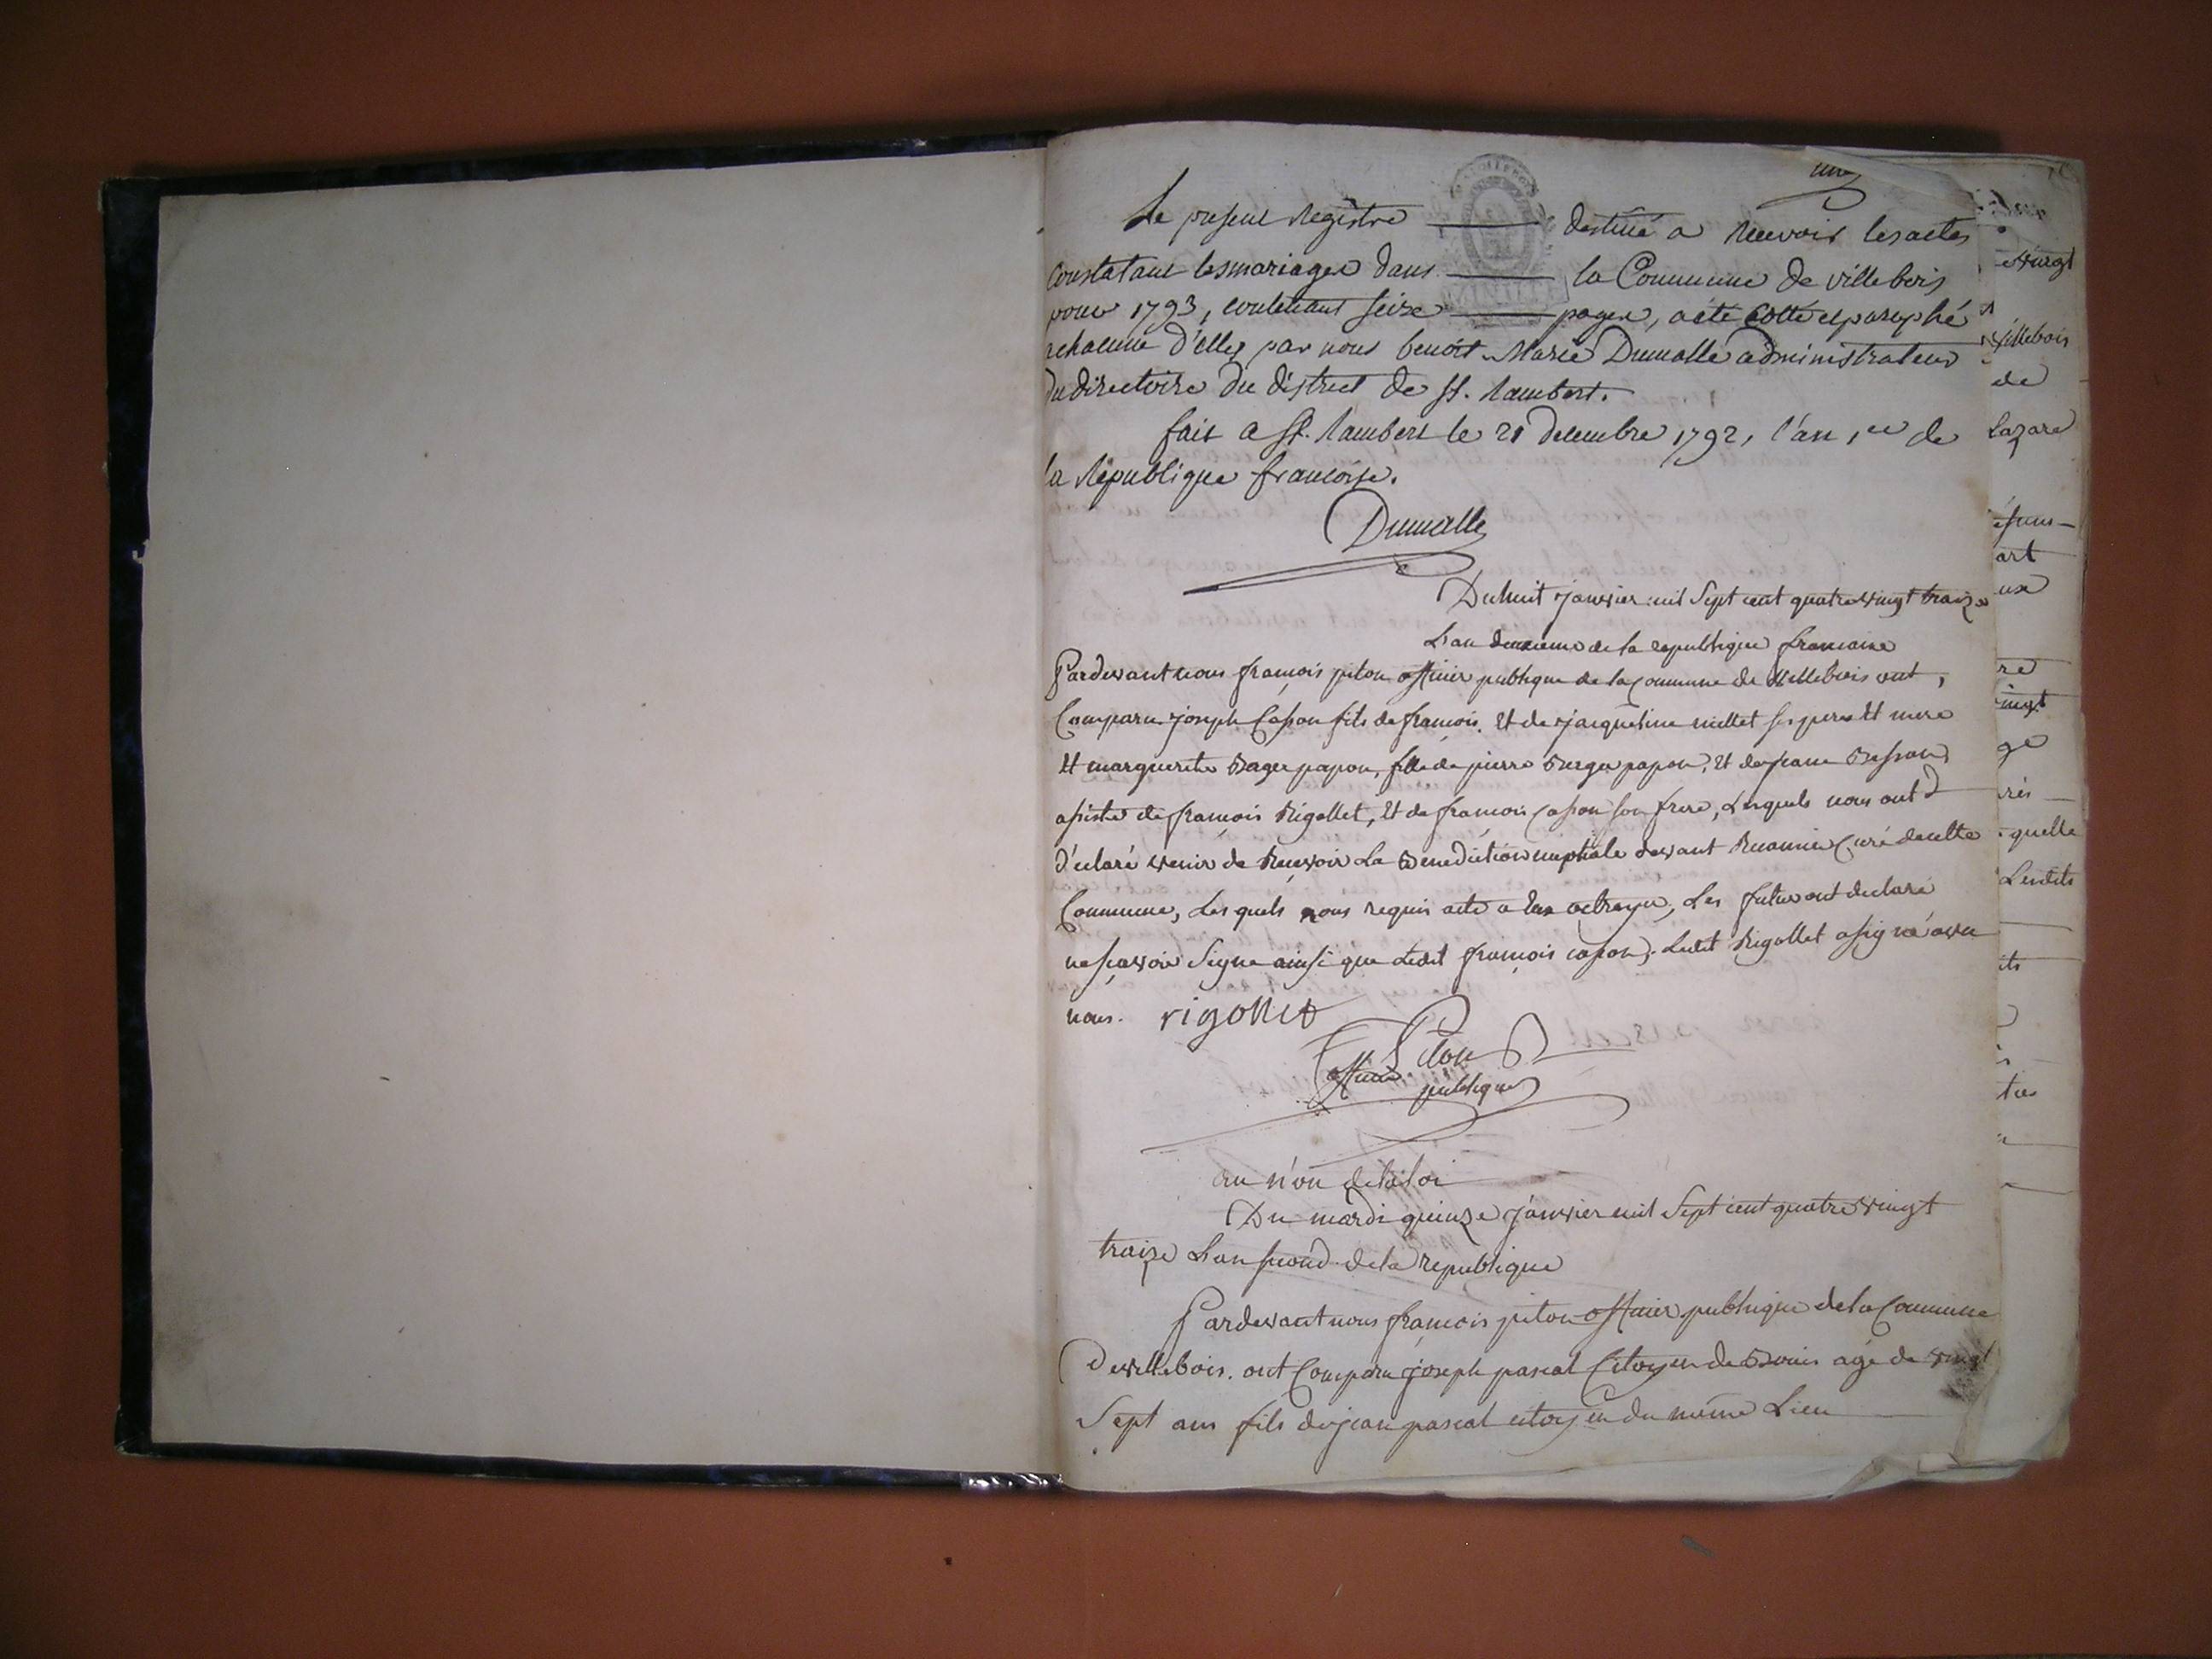 une
Le present Registre destiné a Recevoir les actes
constatant les mariages dans la Commune de villebois
pour 1793, contenant seize pages, a été cotté et paraphé
a chacune d'elles par nous benoit Marie Dumolle administrateur
du directoire du district de St. Rambert.
fait a St. Rambert le 21 decembre 1792, l'an 1er de
la République françoise.
Dumolle
Du huit janvier mil sept cent quatre vingt traize
L'an deuxieme de la republique francaise
Pardevant nous françois piton officier publique de la commune de Villebois ont,
Comparu joseph Cason fils de françois et de jacqueline millet ses pere et mere
et marguerite Berger papon, fille de pierre Berger papon, et de jeane Besson
asisté de françois Rigollet, et de françois cason son frere, Lesquels nous ont
d'eclaré venir de Recevoir La Benediction nuptiale devant curé de cette
Commune, Lesquels nous requis acte a octroyer, Les futur ont declaré
ne scavoir Signe ainsi que Ledit françois cason. Ledit Rigollet a signé avec
nous. rigollet
Piton
officier publique
au n'on de la loi
Du mardi quinze janvier mil Sept cent quatre vingt
traize L'an second de la republique
Pardevant nous françois piton officier publique de la Commune
de villebois. ont Comparu joseph pascal Citoyen de agé de vingt
Sept ans fils de jean pascal citoyen du même Lieu
vingt
villebois
de
Lazare
art
re
vingt
ge
quelle
Lesdits